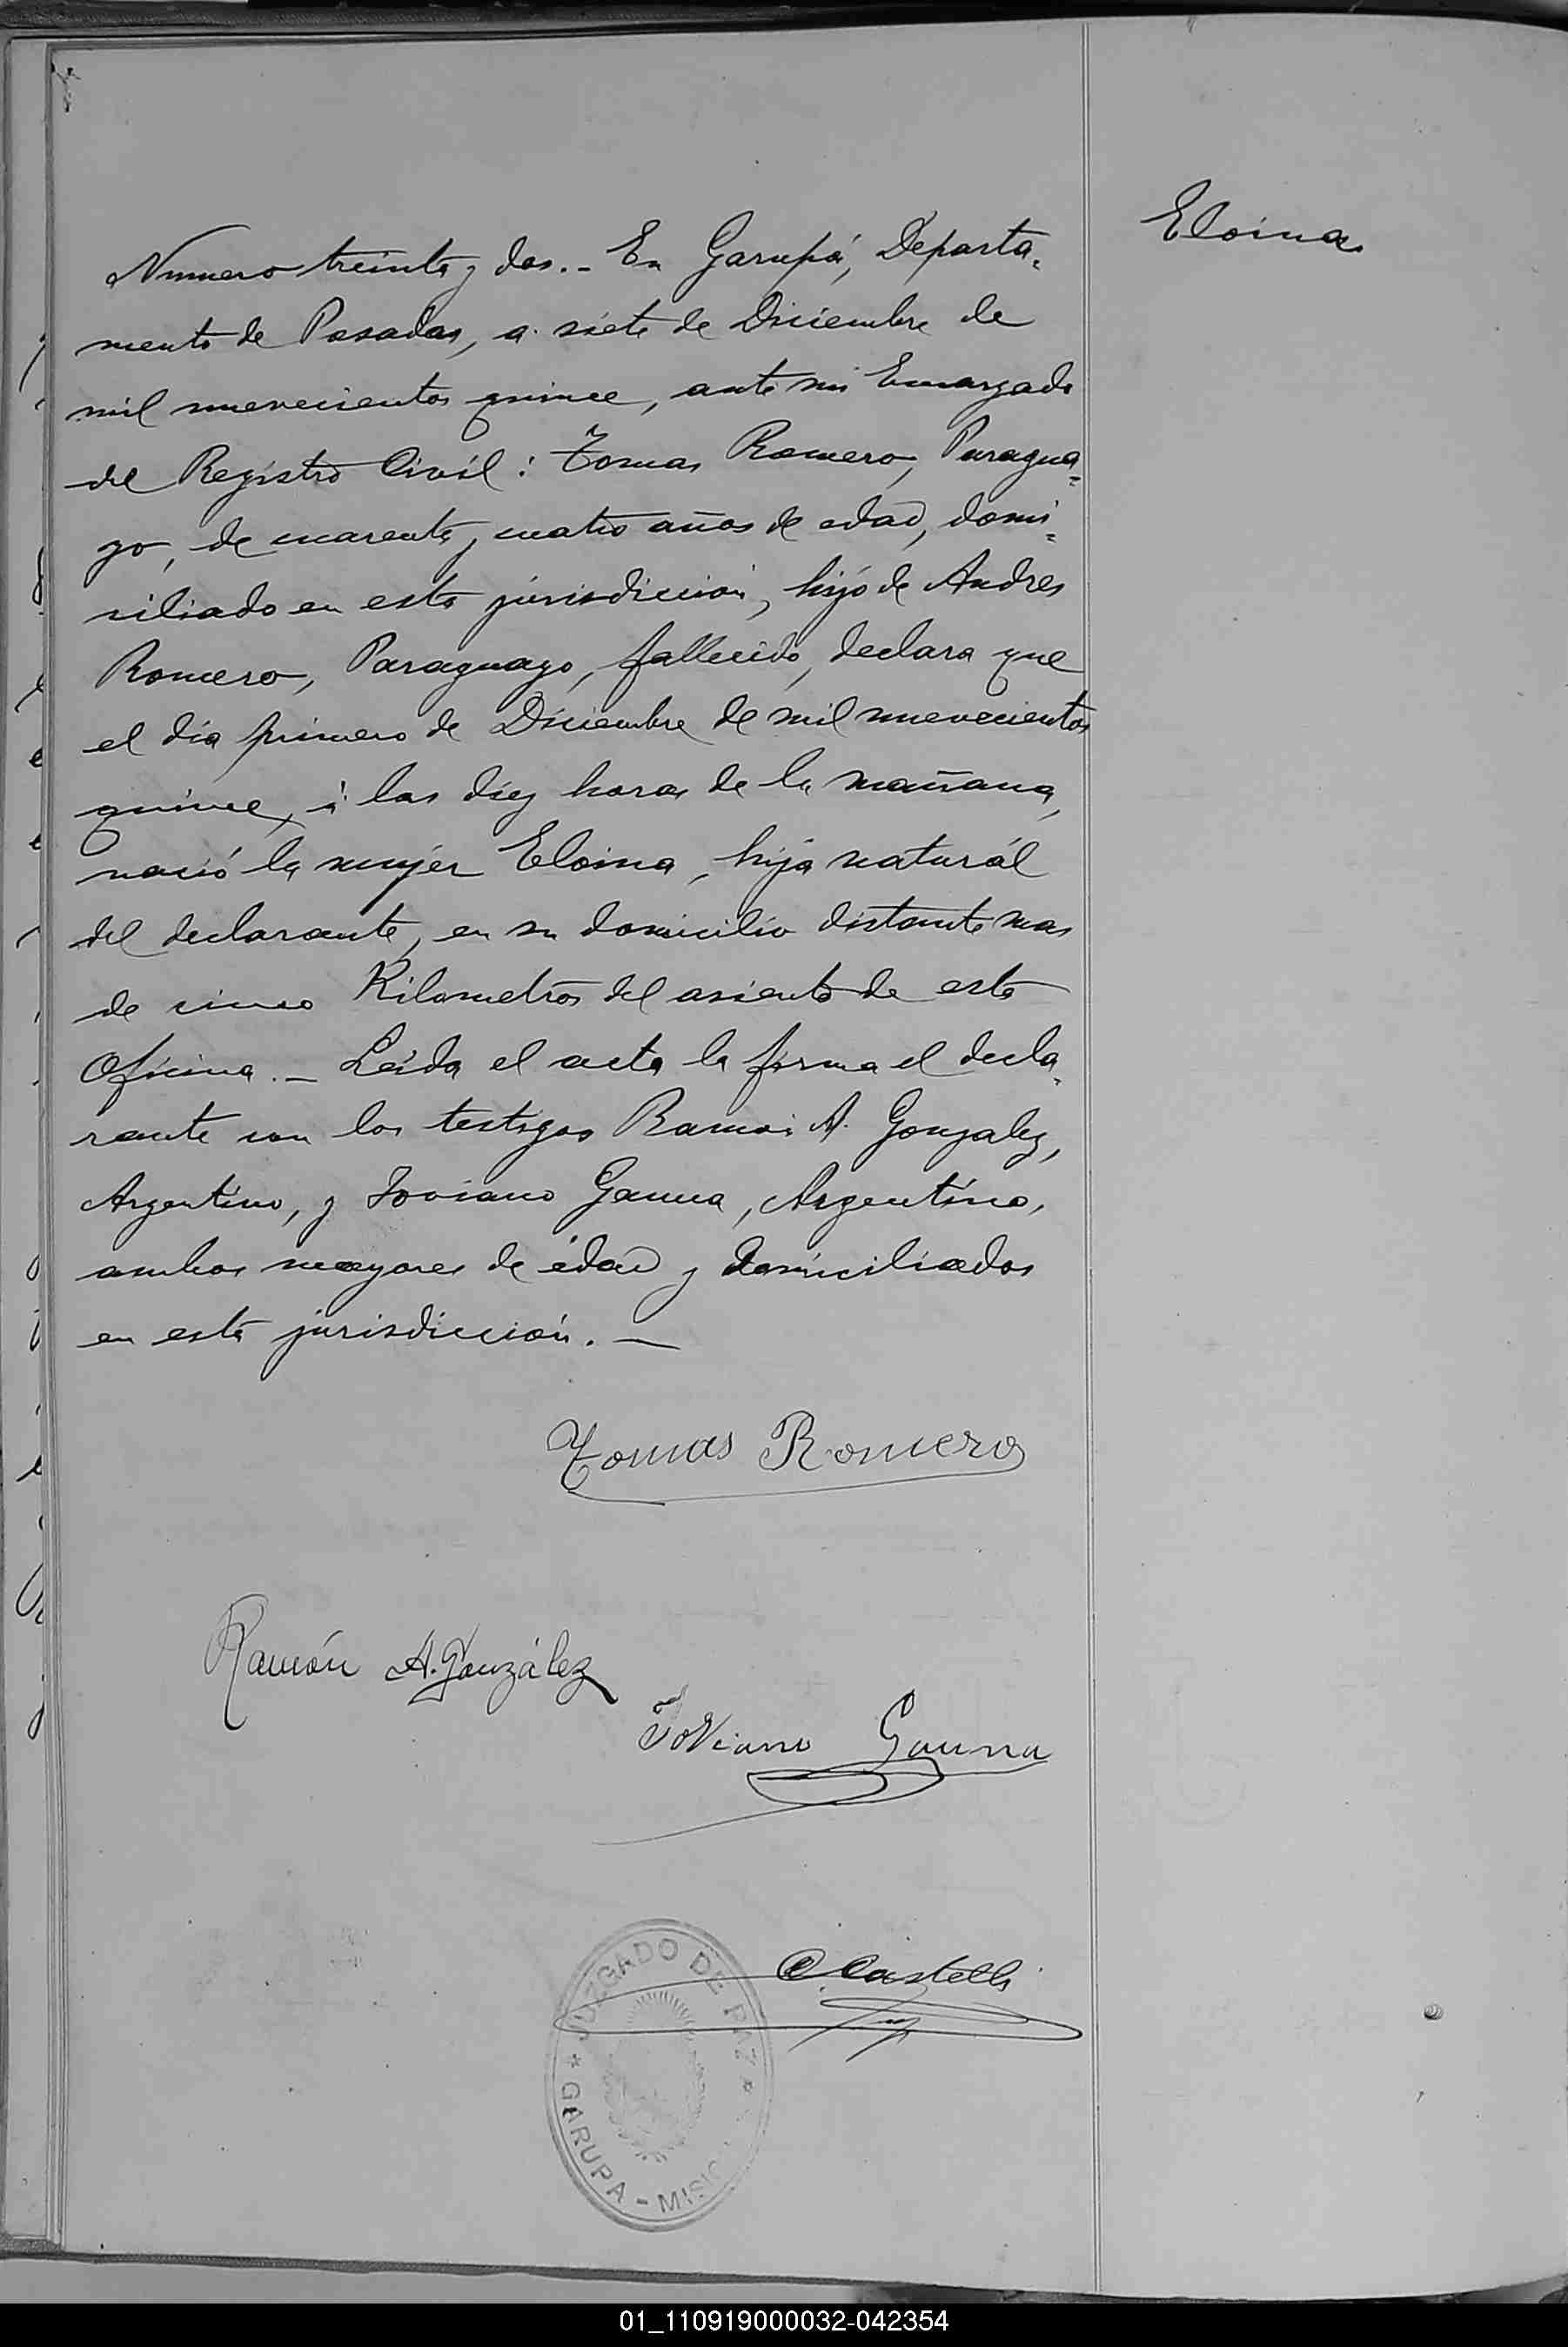 Eloina
Numero treinta y dos.- En Garupá, Departa-
mento de Posadas, a siete de Diciembre de
mil nuevecientos quince, ante mi Encargado
del Registro Civil: Tomas Romero, Paragua-
yo, de cuarenta y cuatro años de edad, domi-
ciliado en esta jurisdiccion, hijo de Andres
Romero, Paraguayo, fallecido, declara que
el día primero de Diciembre de mil nuevecientos
quince, á las diez horas de la mañana,
nació la mujer Eloina, hija naturál
del declarante, en su domicilio distante mas
de cinco Kilometros del asiento de esta
Oficina.- Leída el acta la firma el decla-
rante con los testigos Ramón A. Gonzalez,
Argentino, y Joviano Gauna, Argentino,
ambos mayores de edad y domiciliados
en esta jurisdicción.-
Tomas Romero
Ramón A. González
Joviano Gauna
C. Castelli
JUZGADO DE PAZ
GARUPA - MISI
01_110919000032-042354